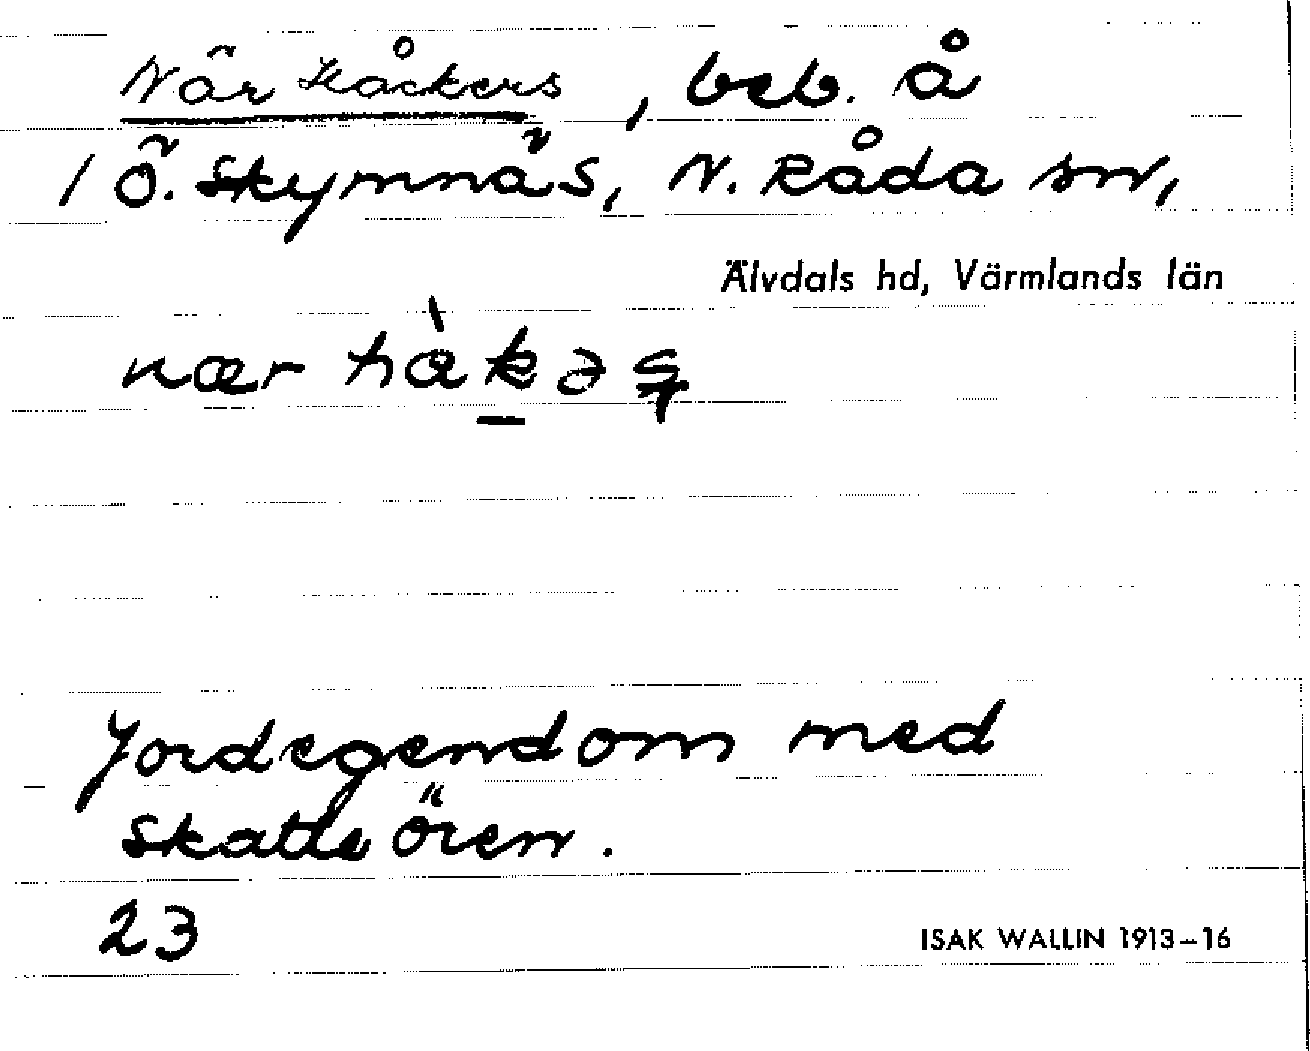 När Håckers, beb. å
1 Ö. Skymnäs, N. Råda sn,
Älvdals hd, Värmlands län
nær
Jordegendom med
skatteören.
23
ISAK WALLIN 1913–16